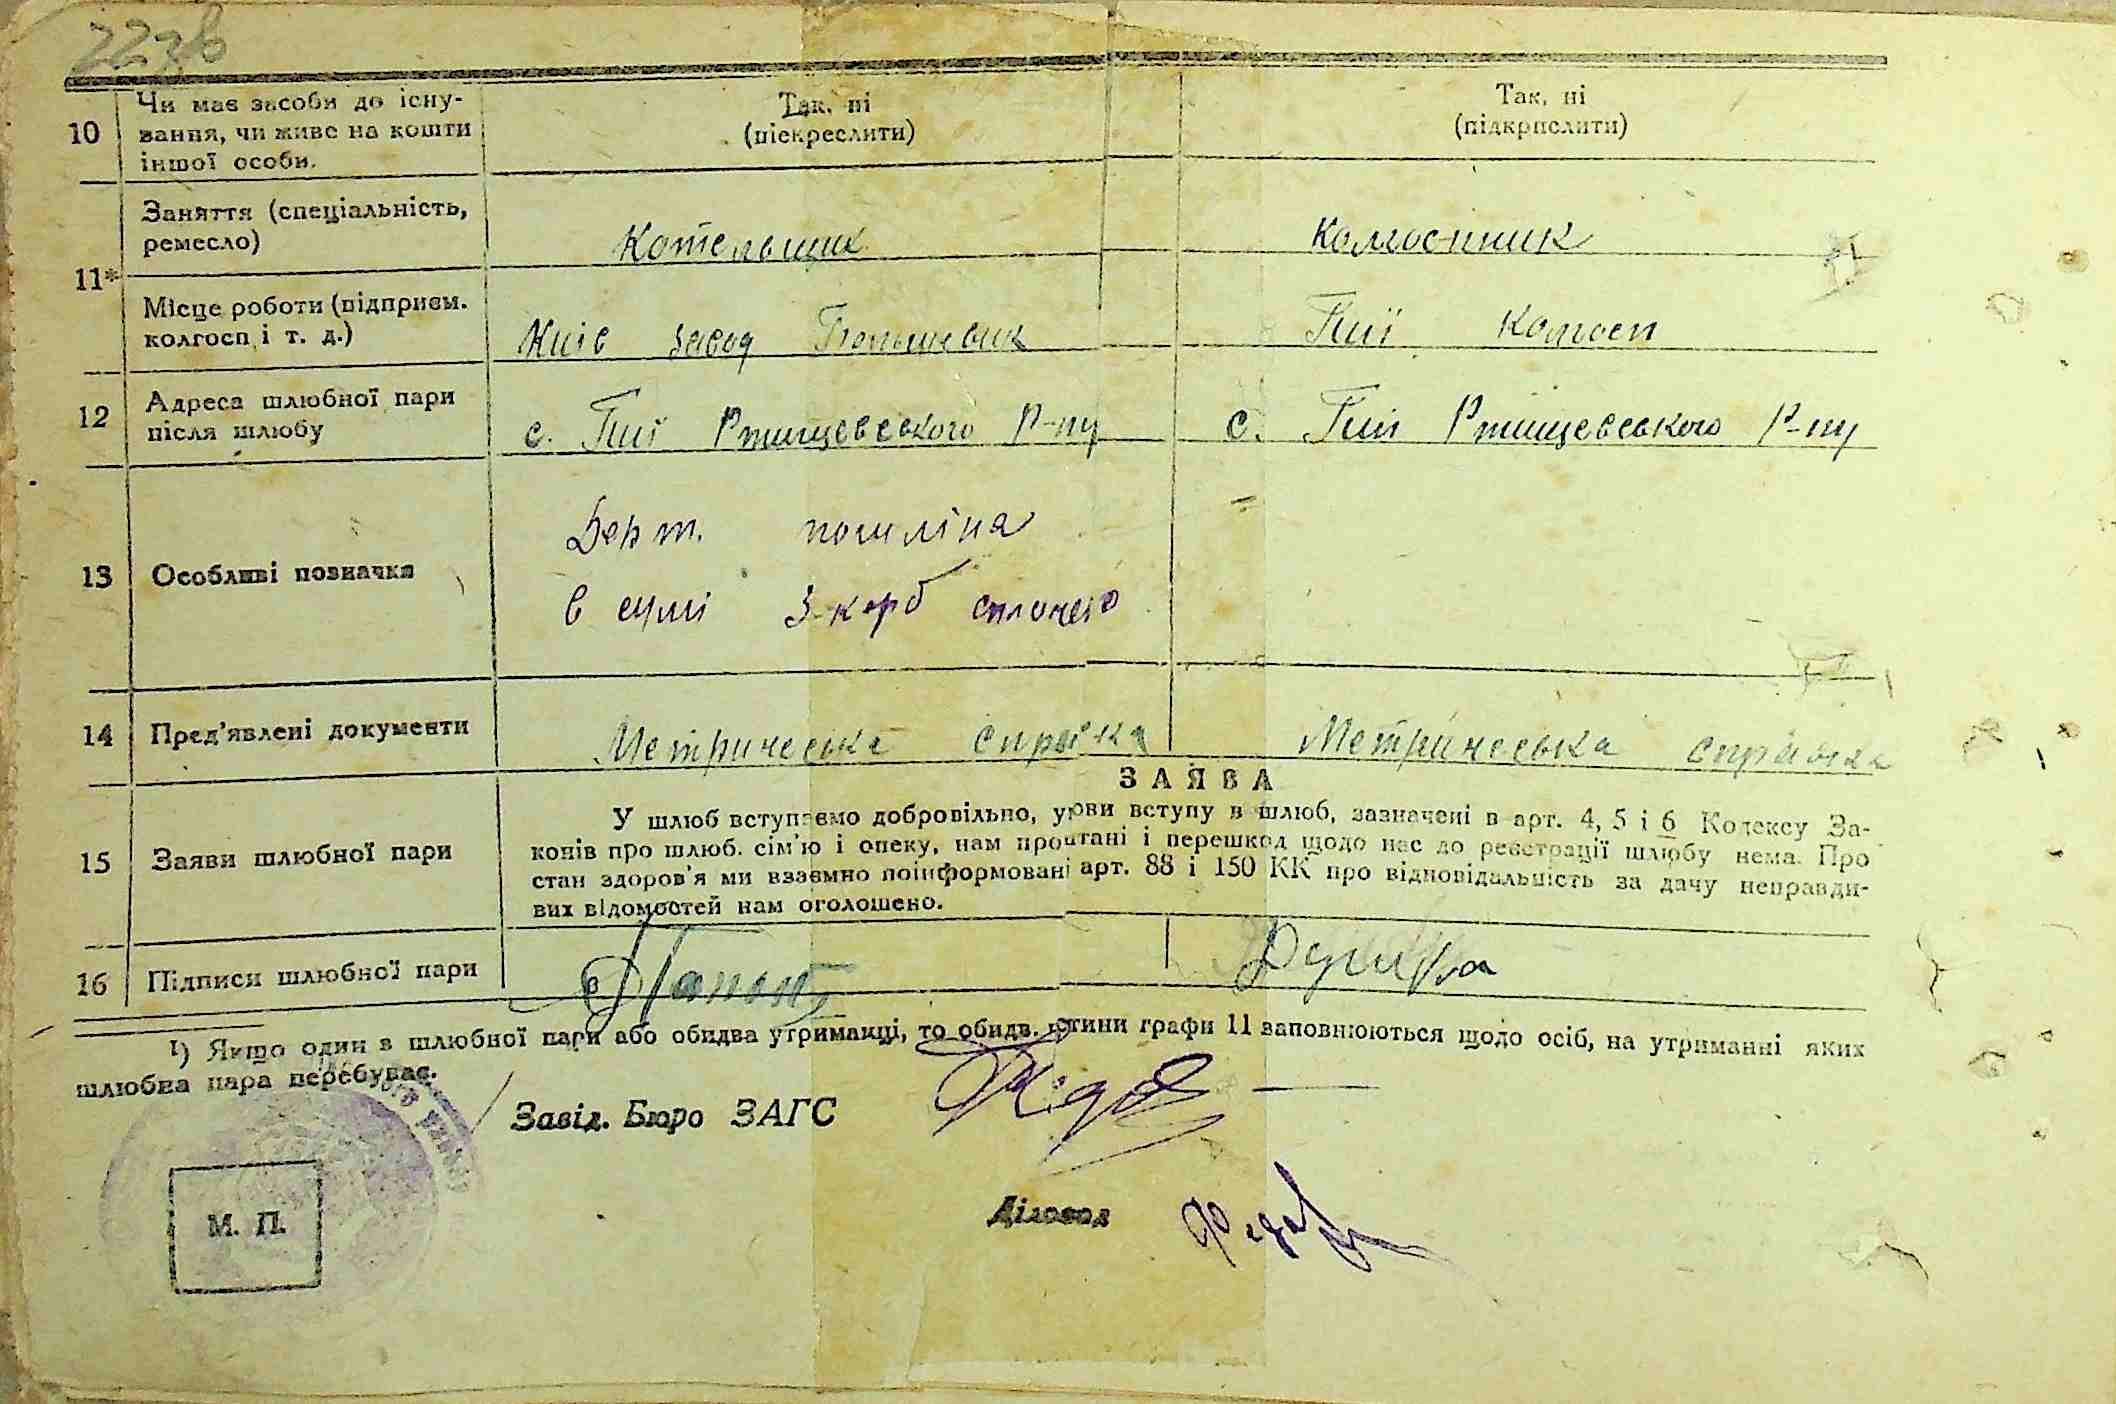 223в
10
Чи має засоби до існу-
вання, чи живе на кошти
іншої особи.
Так, ні
(піскреслити)
Так, ні
(підкрпслити)
11*
Заняття (спеціальність,
ремесло)
Котельщик
Колгоспник
Місце роботи (підприєм.
колгосп і т. д.)
Київ завод Большевик
Пії колгосп
12
Адреса шлюбної пари
після шлюбу
с. Пії Ртищевського Р-ну
с. Пії Ртищевського Р-ну
13
Особливі позначки
Держ. пошліна
в сумі 3 карб сплочено
14
Пред'явлені документи
Метрическа справка
Метрическа справка
15
Заяви шлюбної пари
ЗАЯВА
У шлюб вступаємо добровільно, умови вступу в шлюб, зазначені в арт. 4, 5 і 6 Кодексу За-
конів про шлюб. сім'ю і опеку, нам прочитані і перешкод щодо нас до реєстрації шлюбу нема. Про
стан здоров'я ми взаємно поінформовані арт. 88 і 150 КК про відповідальність за дачу неправди-
вих відомостей нам оголошено.
16
Підписи шлюбної пари
1) Якщо один з шлюбної пари або обидва утриманці, то обидв. частини графи 11 заповнюються щодо осіб, на утриманні яких
шлюбна пара перебуває.
Завід. Бюро ЗАГС
Діловод
М. П.